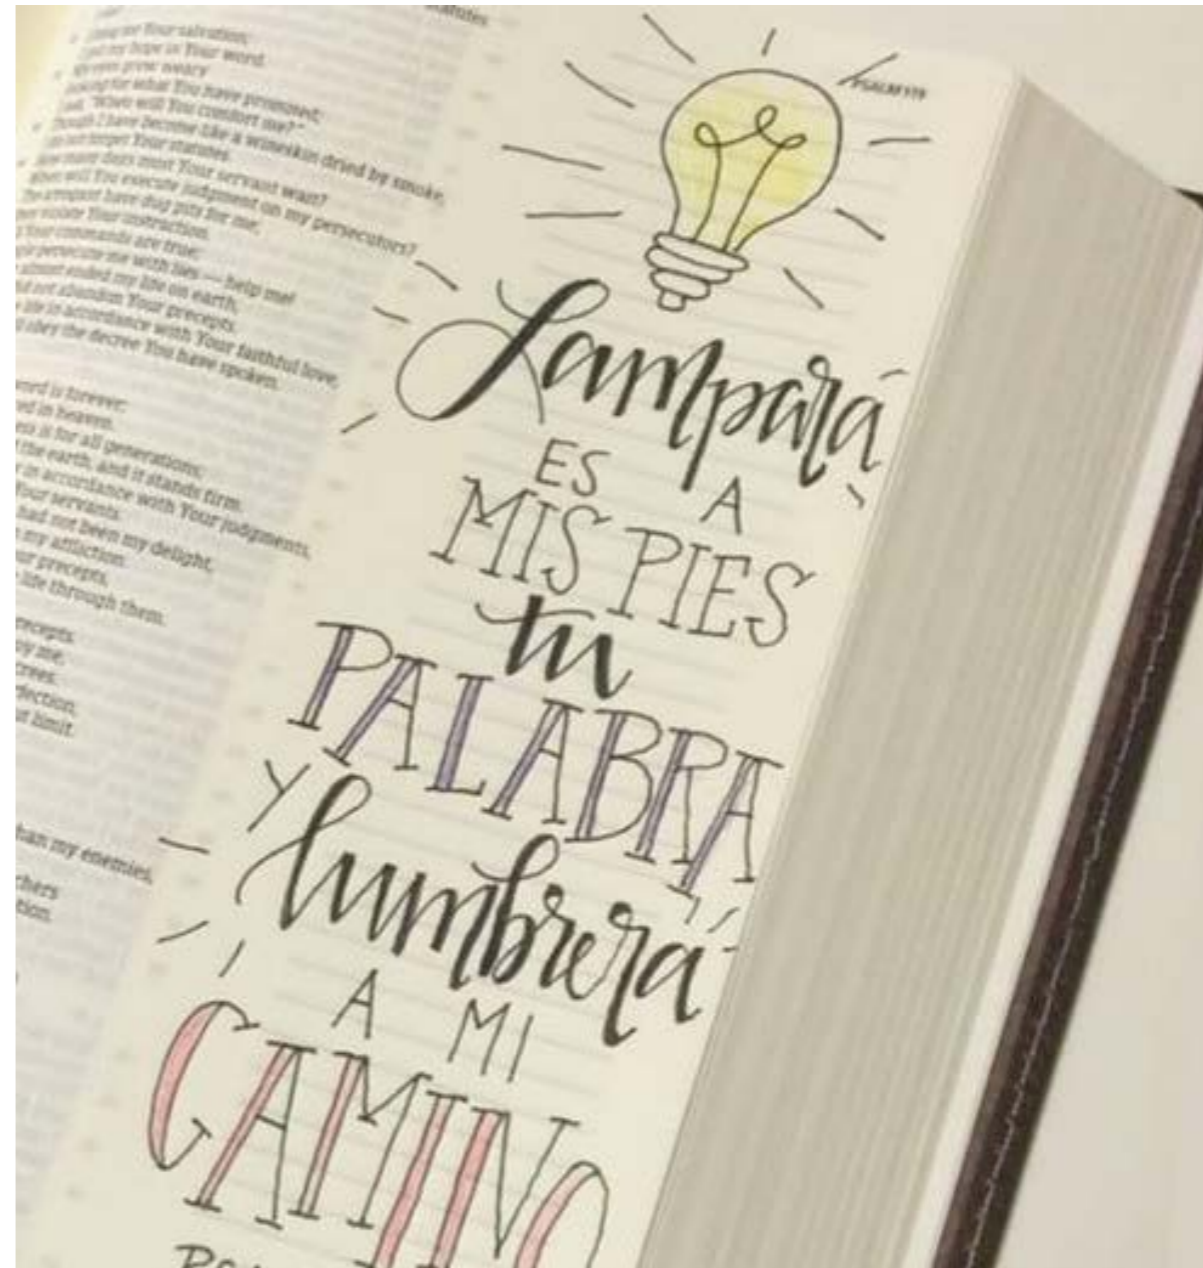 statutes
PSALM 119
Your salvation;
my hope in Your word.
eyes grow weary
looking for what You have promised;
"When will You comfort me?"
Though I have become like a wineskin dried by smoke,
not forget Your statutes.
How many days must Your servant wait?
When will You execute judgment on my persecutors?
The arrogant have dug pits for me;
violate Your instruction.
Your commands are true;
persecute me with lies — help me!
almost ended my life on earth,
not abandon Your precepts.
life in accordance with Your faithful love,
obey the decree You have spoken.
word is forever;
in heaven.
is for all generations;
the earth, and it stands firm.
in accordance with Your judgments,
Your servants.
had not been my delight,
my affliction.
precepts,
life through them.
precepts.
me,
limit.
than my enemies,
Lampara
ES A
MIS PIES
tu
PALABRA
Y
lumbrera
A MI
CAMINO